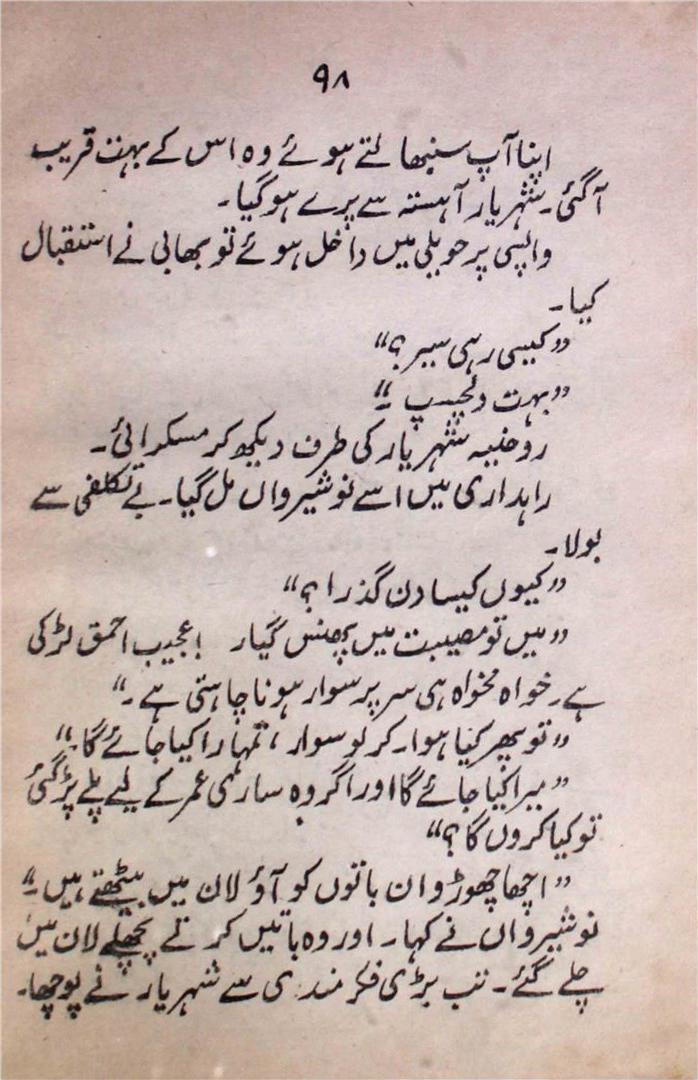 ۹۸
اپنا آپ سنبھالتے ہوئے وہ اس کے بہت قریب
آگئی۔ شہریار آہستہ سے پرے ہوگیا۔
واپسی پر حویلی میں داخل ہوئے تو بھابی نے استقبال
کیا۔
”کیسی رہی سیر؟“
”بہت دلچسپ۔“
روحنیہ شہریار کی طرف دیکھ کر مسکرائی۔
راہداری میں اسے نوشیرواں مل گیا۔ بے تکلفی سے
بولا۔
”کیوں کیسا دن گذرا؟“
”میں تو مصیبت میں پھنس گیا یار! عجیب احمق لڑکی
ہے۔ خواہ مخواہ ہی سر پر سوار ہونا چاہتی ہے۔“
”تو پھر کیا ہوا۔ کر لو سوار، تمہارا کیا جائے گا۔“
”میرا کیا جائے گا اور اگر وہ ساری عمر کے لیے پلے پڑ گئی
تو کیا کروں گا؟“
”اچھا چھوڑو ان باتوں کو آؤ لان میں بیٹھتے ہیں۔“
نوشیرواں نے کہا۔ اور وہ باتیں کرتے پچھلے لان میں
چلے گئے۔ تب بڑی فکر مندی سے شہریار نے پوچھا۔